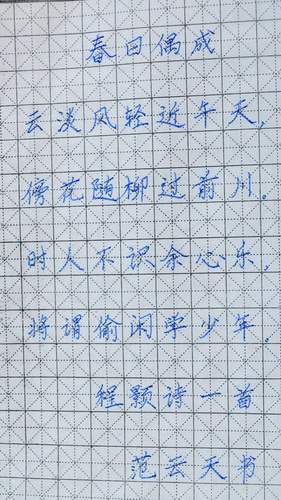 春日偶成
云淡风轻近午天，
傍花随柳过前川。
时人不识余心乐，
将谓偷闲学少年。
程颢诗一首
范云天书